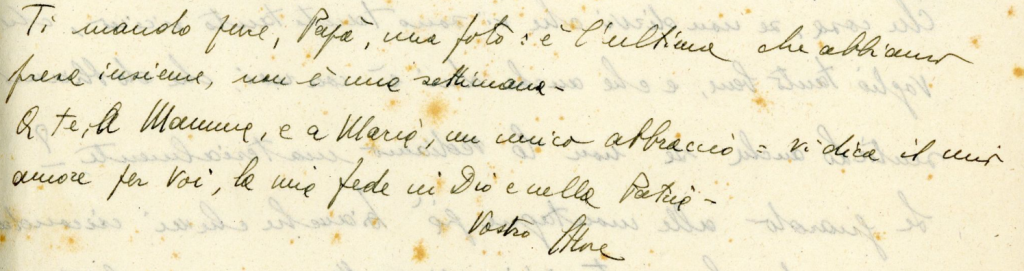 Ti mando pure, Papà, una foto: è l'ultima che abbiamo
presa insieme, non è una settimana -
A te, a Mamma, e a Maria, un unico abbraccio = vi dica il mio
amore per voi, la mia fede in Dio e nella Patria -
Vostro Ettore